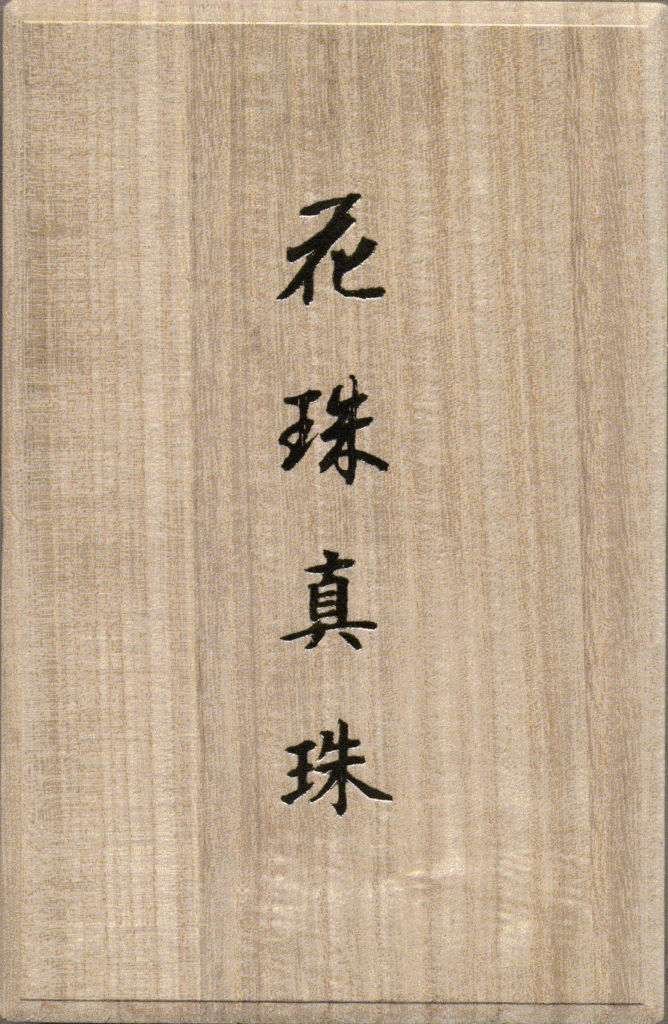 花珠真珠